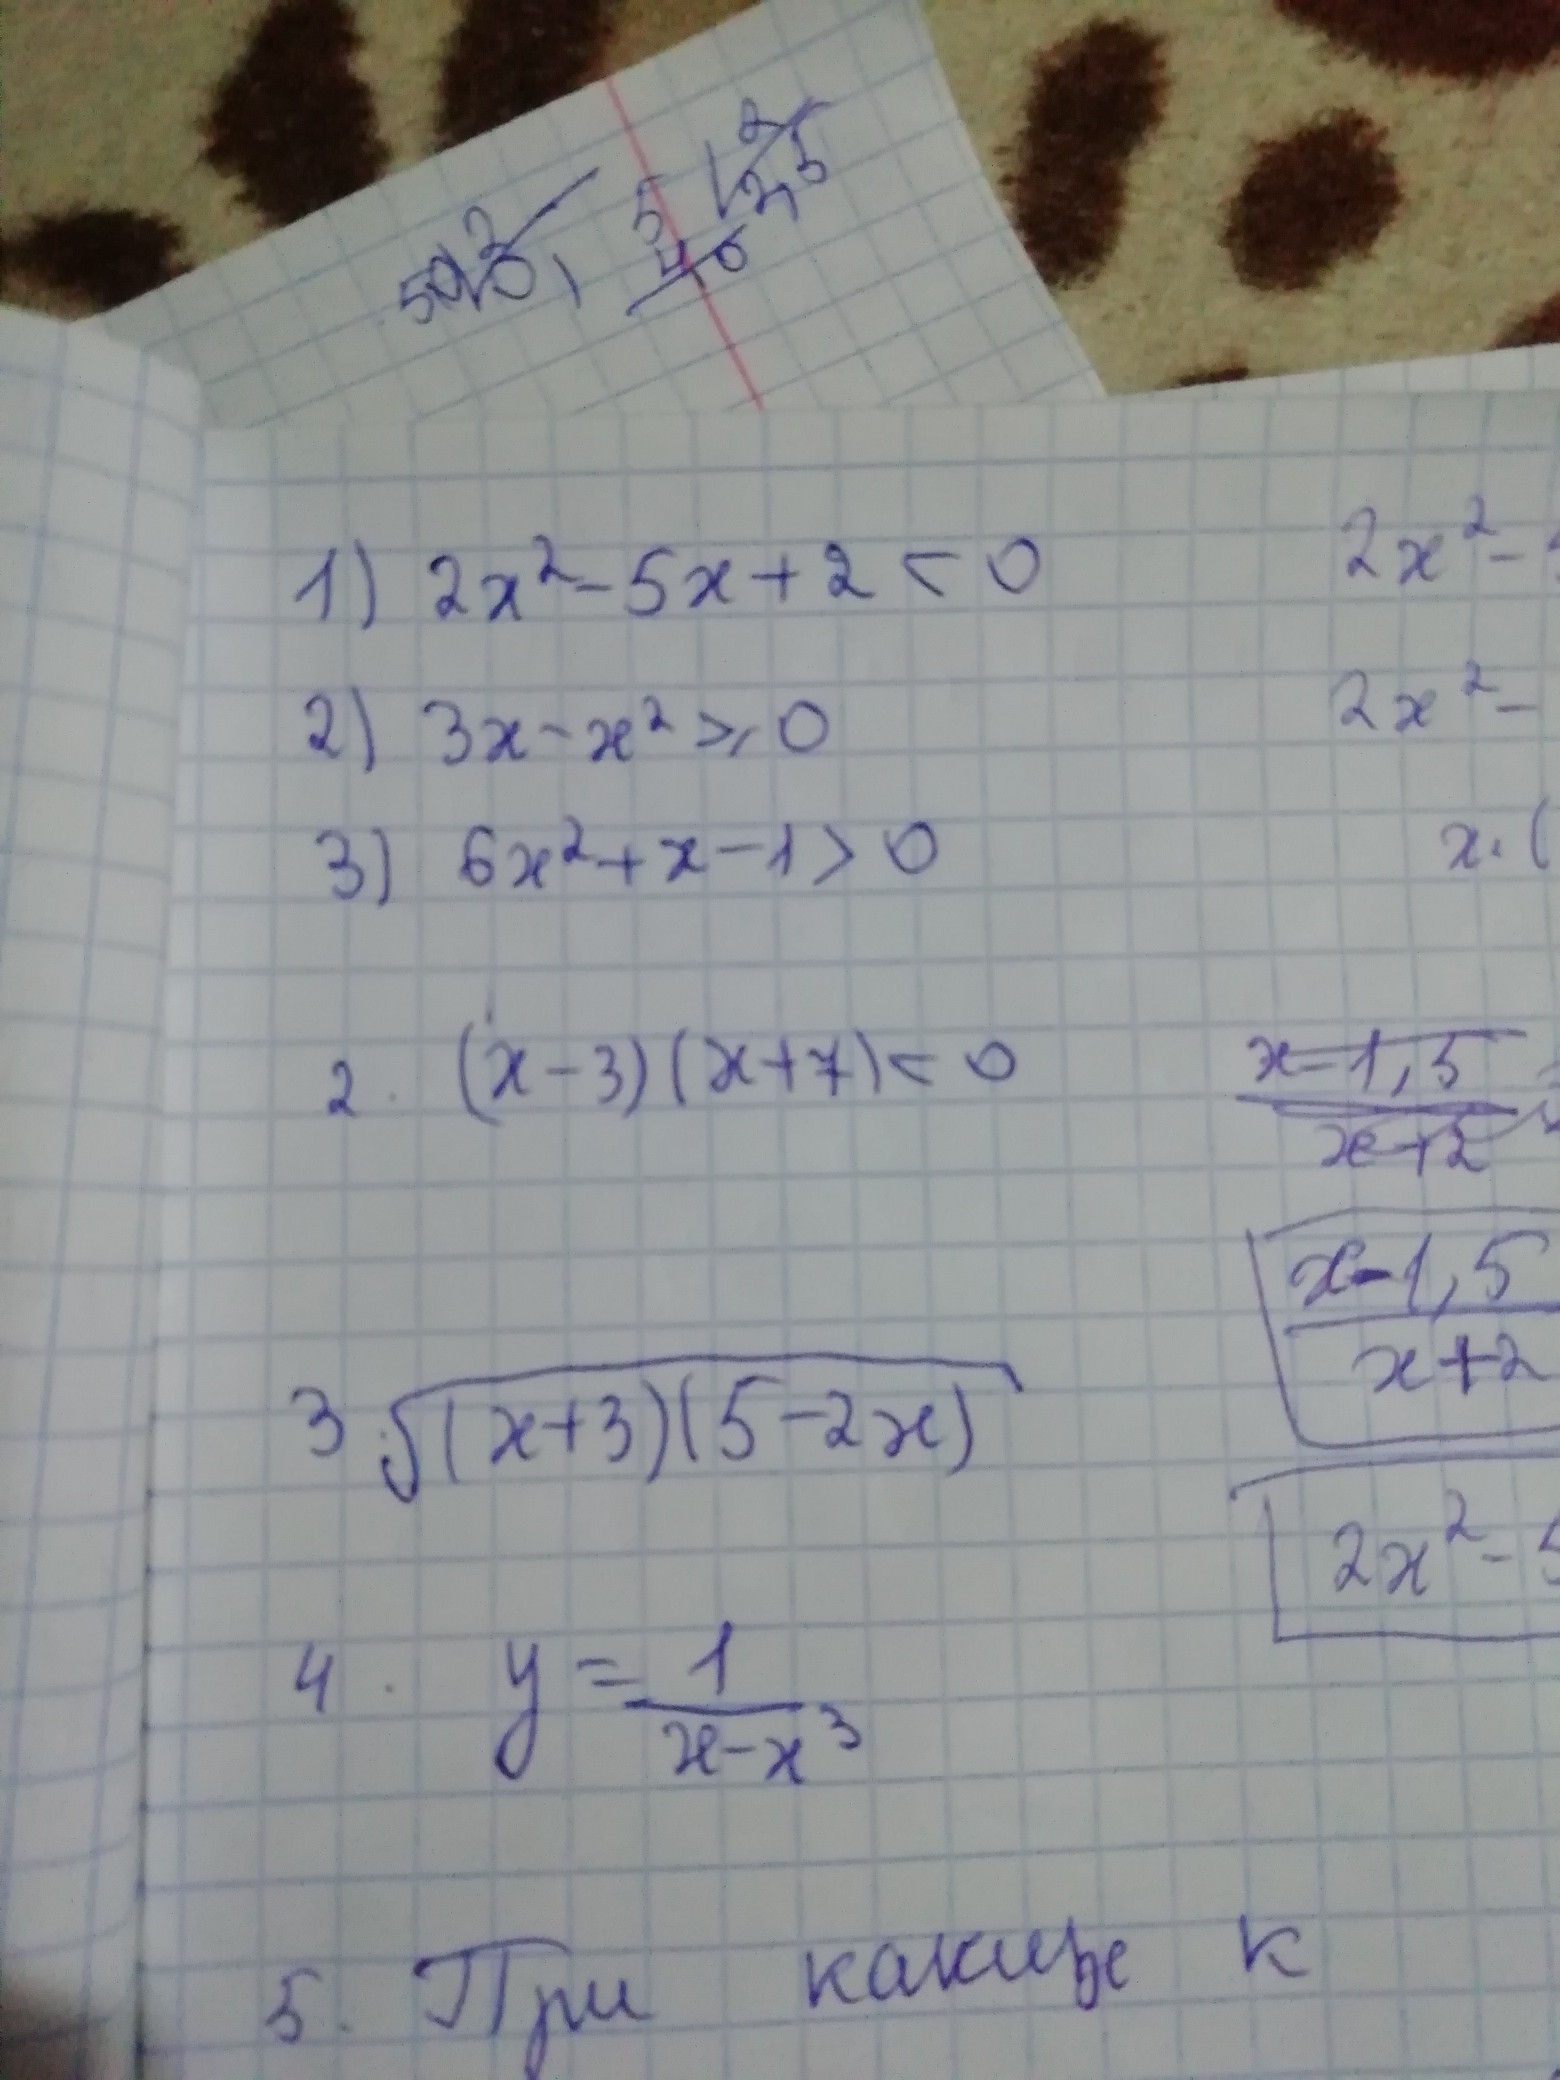 1) 2x² - 5x + 2 < 0
2) 3x - x² ⩾ 0
3) 6x² + x - 1 > 0
2. (x - 3)(x + 7) < 0
3. √(x+3)(5-2x)
4. y = 1/(x - x³)
5. При каких к
2x² -
2x² -
x · (
x - 1,5
x + 2
x - 1,5
x + 2
2x² - 5